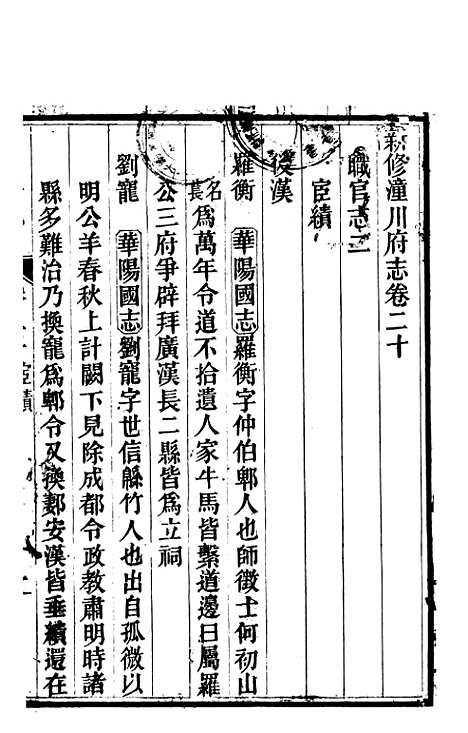 新修潼川府志卷二十
職官志三
宦績
後漢
羅衡　華陽國志羅衡字仲伯郫人也師徵士何初山
名長爲萬年令道不拾遺人家牛馬皆繫道邊曰屬羅
公三府爭辟拜廣漢長二縣皆爲立祠
劉寵　華陽國志劉寵字世信緜竹人也出自孤微以
明公羊春秋上計闕下見除成都令政教肅明時諸
縣多難治乃換寵爲郫令又換郪安漢皆垂績還在
宦績